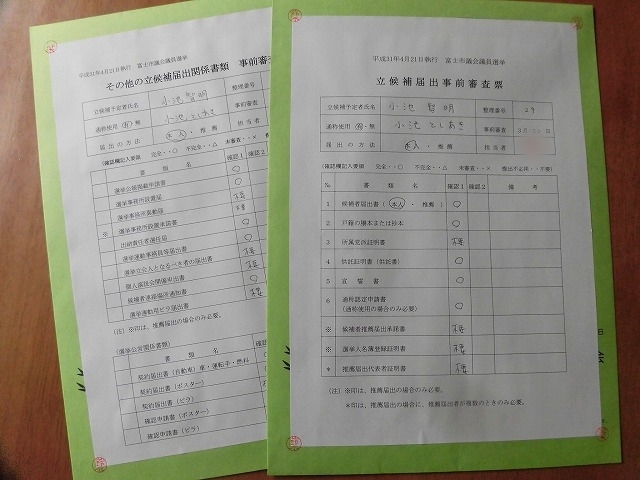 平成31年4月21日執行 富士市議会議員選挙
その他の立候補届出関係書類 事前審査
立候補予定者氏名 小池智明 整理番号
通称使用 有・無 小池としあき 事前審査
届出の方法 本人・推薦 担当者
(確認欄記入要領 完全・・○ 不完全・・△ 未審査・・×
書類名 確認1 確認2
選挙公報掲載申請書 ○
選挙事務所設置届 ○
選挙事務所異動届
※ 選挙事務所設置承諾書
出納責任者選任届 ○
選挙運動事務員等届出書
選挙立会人となるべき者の届出書
個人演説会開催申出書
候補者連絡場所通知書 ○
選挙運動用ビラ届出書
(注)※印は、推薦届出の場合のみ必要。
(選挙公営関係書類)
書類名
契約届出書(自動車)車・運転手・燃料
契約届出書(ポスター)
契約届出書(ビラ)
確認申請書(ポスター)
確認申請書(ビラ)
平成31年4月21日執行 富士市議会議員選挙
立候補届出事前審査票
立候補予定者氏名 小池 智明 整理番号 29
通称使用 有・無 小池としあき 事前審査 3月
届出の方法 本人・推薦 担当者
(確認欄記入要領 完全・・○ 不完全・・△ 未審査・・× 提出不必要・・不要)
№ 書類名 確認1 確認2 備考
1 候補者届出書(本人・推薦) ○
2 戸籍の謄本または抄本 ○
3 所属党派証明書
4 供託証明書(供託書) ○
5 宣誓書 ○
6 通称認定申請書
(通称使用の場合のみ必要) ○
※ 候補者推薦届出承諾書
※ 選挙人名簿登録証明書
* 推薦届出代表者証明書
(注)※印は、推薦届出の場合のみ必要。
*印は、推薦届出の場合に、推薦届出者が複数のときのみ必要。